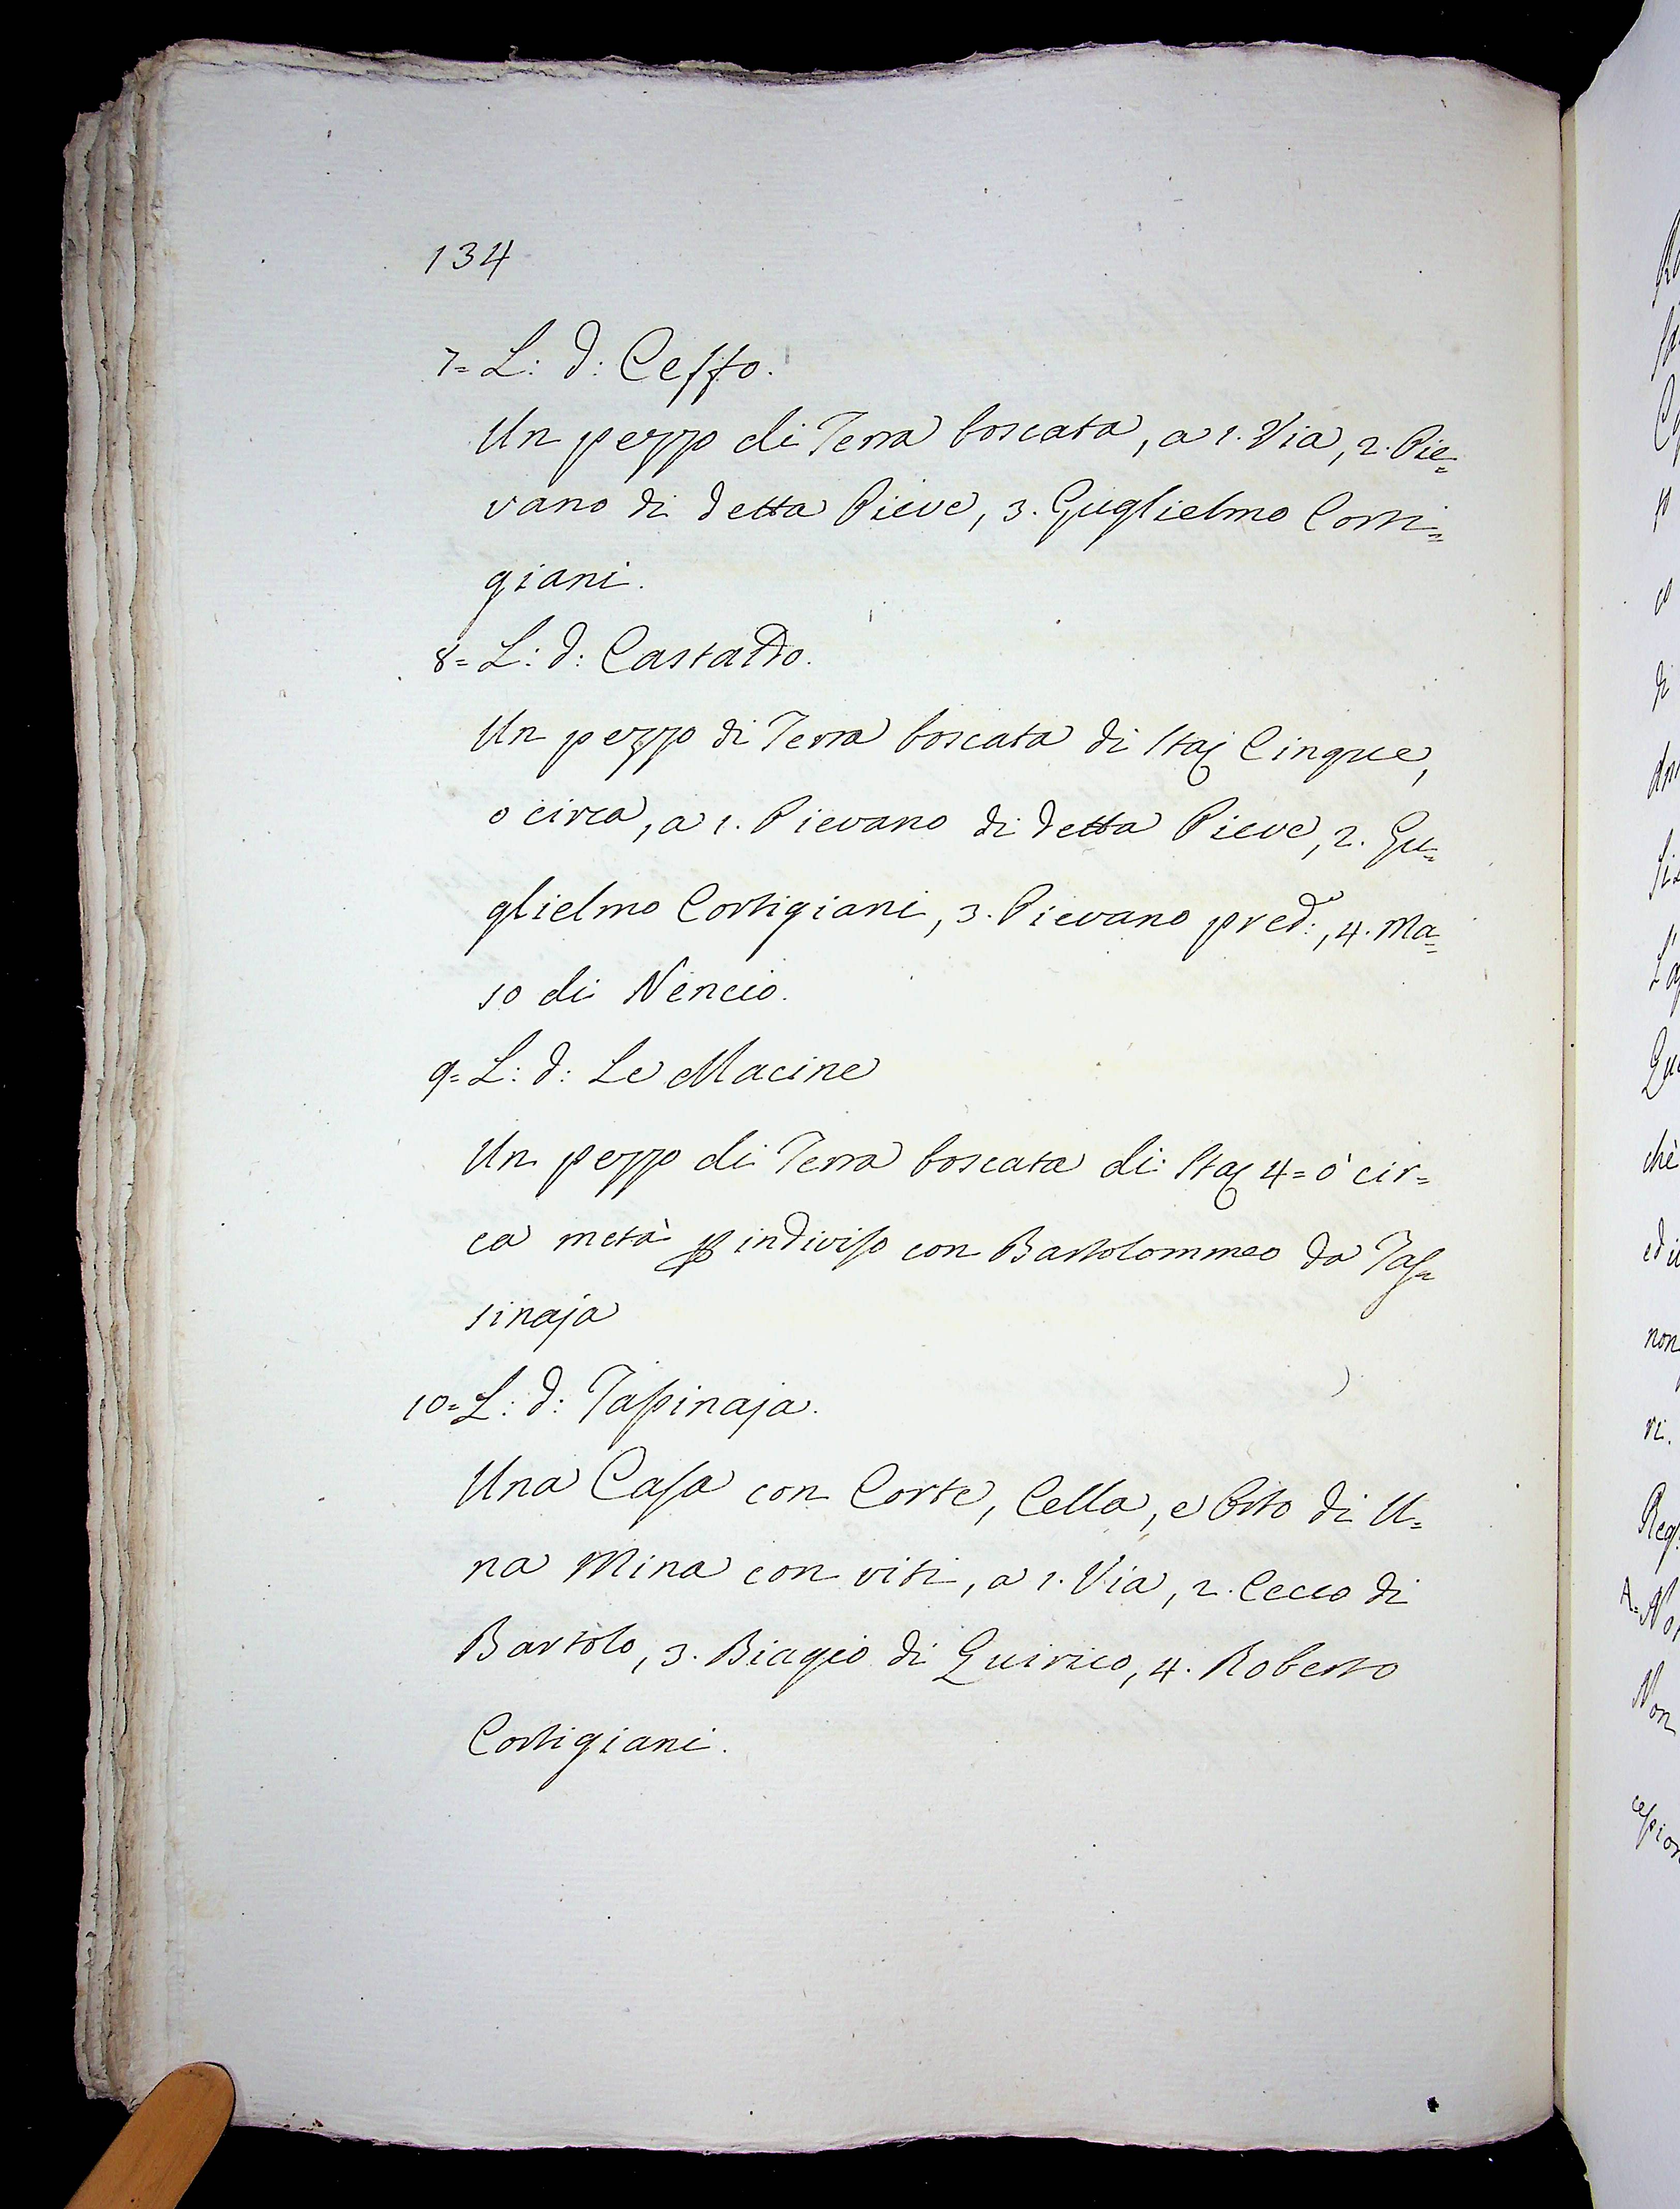 134
7= L: d: Ceffo.
Un pezzo di Terra boscata, a 1. Via, 2. Pie=
vano di detta Pieve, 3. Guglielmo Corti=
giani.
8= L: d: Castatto.
Un pezzo di Terra boscata di Staj Cinque,
o circa, a 1. Pievano di detta Pieve, 2. Gu=
glielmo Cortigiani, 3. Pievano pred:, 4. Ma=
so di Nencio.
9= L: d: Le Macine
Un pezzo di Terra boscata di Staj 4= ò cir=
ca metà p indiviso con Bartolommeo da Tas=
sinaja
10= L: d: Tassinaja.
Una Casa con Corte, Cella, e Orto di U=
na Mina con viti, a 1. Via, 2. Cecco di
Bartolo, 3. Biagio di Quirico, 4. Roberto
Cortigiani.